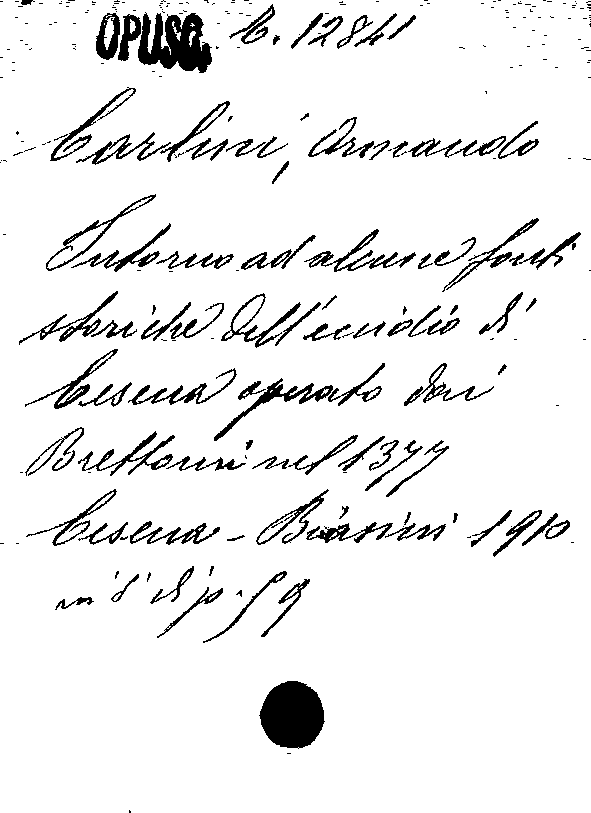 OPUSC. C. 12841
Carlini, Armando
Intorno ad alcune fonti
storiche dell'eccidio di
Cesena operato dai
Brettoni nel 1377
Cesena - Biasini 1910
in 8° di p. 59